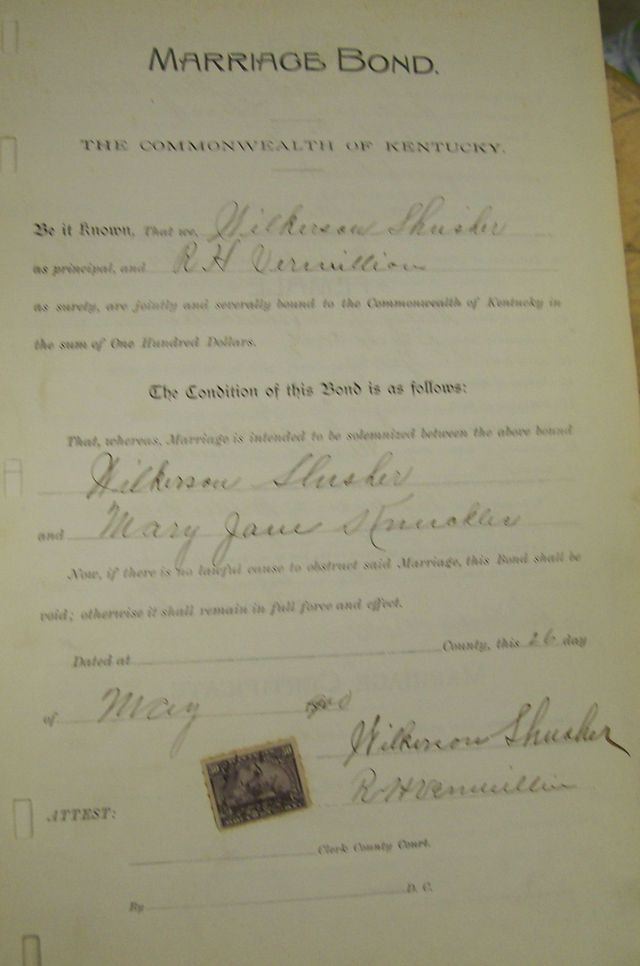 MARRIAGE BOND.
THE COMMONWEALTH OF KENTUCKY.
Be it Known, That we, Wilkerson Slusher
as principal, and R H Vermillion
as surety, are jointly and severally bound to the Commonwealth of Kentucky in
the sum of One Hundred Dollars.
The Condition of this Bond is as follows:
That, whereas, Marriage is intended to be solemnized between the above bound
Wilkerson Slusher
and Mary Jane Knuckles
Now, if there is no lawful cause to obstruct said Marriage, this Bond shall be
void; otherwise it shall remain in full force and effect.
Dated at County, this 26 day
of May 1900
Wilkerson Slusher
R H Vermillion
ATTEST:
Clerk County Court.
By D. C.